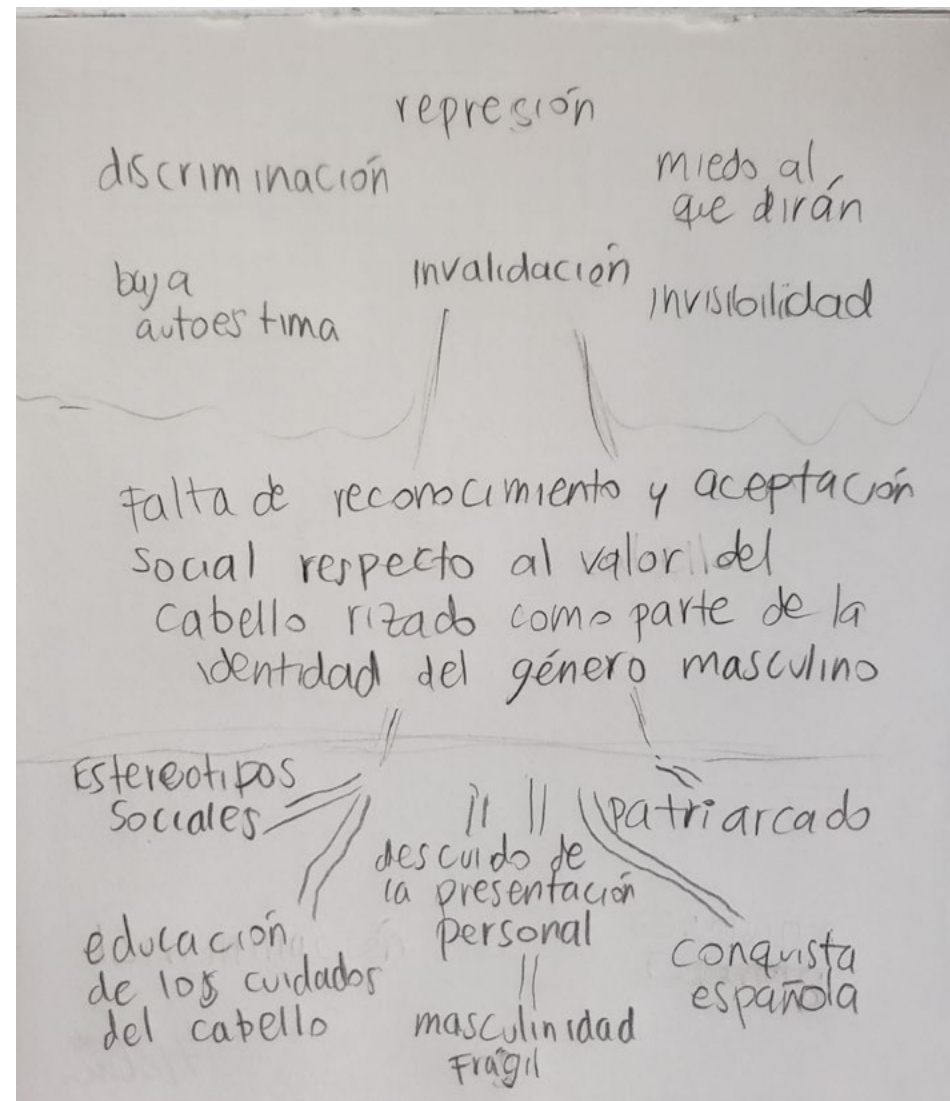 represión
discriminación
miedo al
que dirán
invalidación
baja
autoestima
invisibilidad
Falta de reconocimiento y aceptación
social respecto al valor del
cabello rizado como parte de la
identidad del género masculino
Estereotipos
sociales
patriarcado
descuido de
la presentación
personal
educación
de los cuidados
del cabello
conquista
española
masculinidad
Frágil